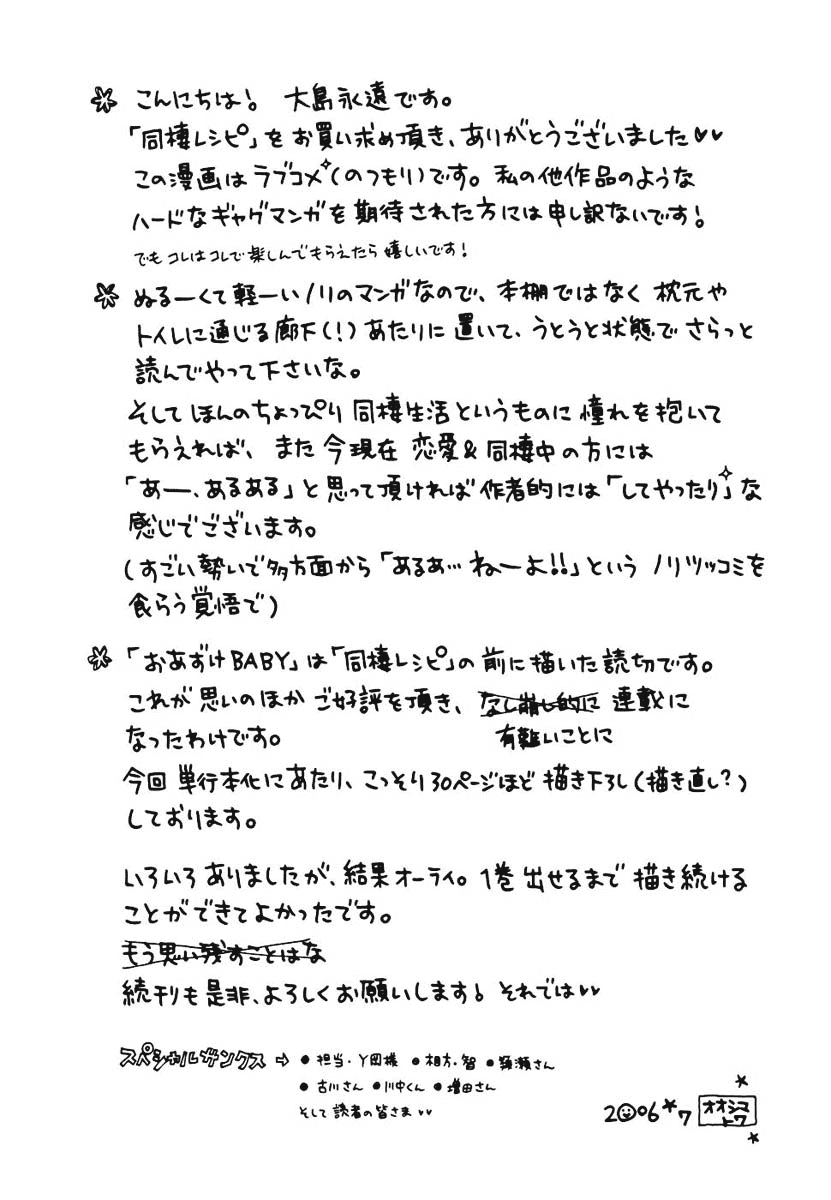 こんにちは! 大島永遠です。
「同棲レシピ」をお買い求め頂き、ありがとうございました♥♥
この漫画はラブコメ(のつもり)です。私の他作品のような
ハードなギャグマンガを期待された方には申し訳ないです!
でもコレはコレで楽しんでもらえたら嬉しいです!
ぬるーくて軽ーいノリのマンガなので、本棚ではなく枕元や
トイレに通じる廊下(!)あたりに置いて、うとうと状態でさらっと
読んでやって下さいな。
そしてほんのちょっぴり同棲生活というものに憧れを抱いて
もらえれば、また今現在恋愛&同棲中の方には
「あー、あるある」と思って頂ければ作者的には「してやったり」な
感じでございます。
(すごい勢いで多方面から「あるあ…ねーよ!!」というノリツッコミを
食らう覚悟で)
「おあずけBABY」は「同棲レシピ」の前に描いた読切です。
これが思いのほかご好評を頂き、なし崩し的に連載に
有難いことに
なったわけです。
今回単行本化にあたり、こっそり30ページほど描き下ろし(描き直し?)
しております。
いろいろありましたが、結果オーライ。1巻出せるまで描き続ける
ことができてよかったです。
もう思い残すことはな
続刊も是非、よろしくお願いします! それでは♥♥
スペシャルサンクス⇨ ●担当・Y岡様 ●相方・智 ●猪瀬さん
●古川さん ●川中くん ●増田さん
そして読者の皆さま♥♥
2006★7 オオシマトワ